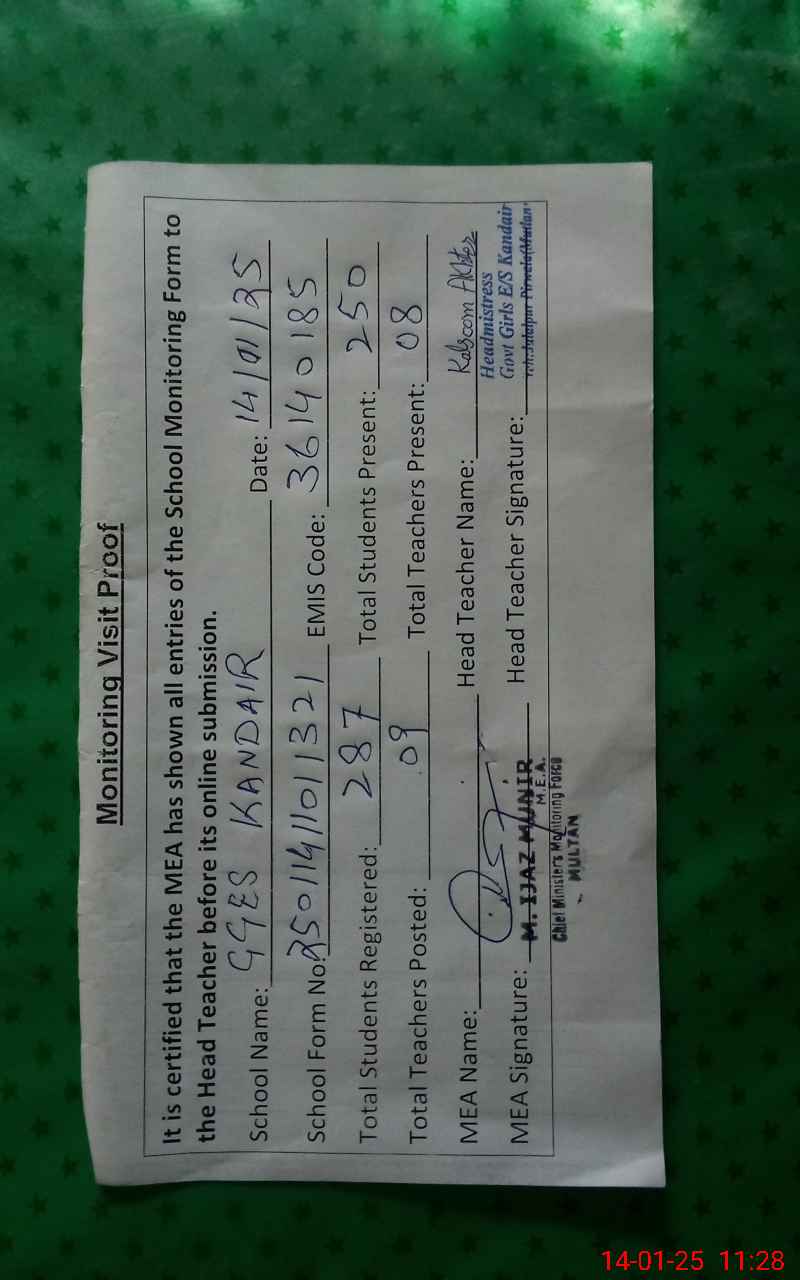 Monitoring Visit Proof
It is certified that the MEA has shown all entries of the School Monitoring Form to
the Head Teacher before its online submission.
School Name: GGES KANDAIR Date: 14/01/25
School Form No: 25011411011321 EMIS Code: 36140185
Total Students Registered: 287 Total Students Present: 250
Total Teachers Posted: 09 Total Teachers Present: 08
MEA Name: Head Teacher Name: Kalsoom Akhter
MEA Signature: Head Teacher Signature:
M. IJAZ MUNIR
M.E.A.
Chief Minister's Monitoring Force
MULTAN
Headmistress
Govt Girls E/S Kandair
Teh: Jalalpur Pirwala(Multan)
14-01-25 11:28